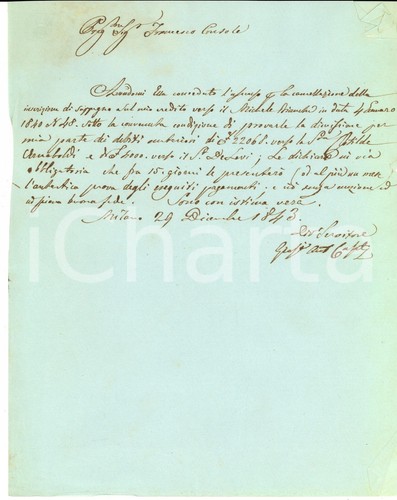 Preg. Sig. Francesco Console
Avendomi Ella conceduto l'assenso per la cancellazione della
iscrizione di sopegno sul mio credito verso il Michele Bianchi in data 4 Gennaro
1840 N. 48. sotto la convenuta condizione di provarle la dimissione per
mia parte dei debiti anteriori di £ 2206 verso la S.ra
e di £ 1000. verso il S. De Levi; Le dichiaro in via
obbligatoria che fra 15. giorni le presenterò od al più in un mese
l'autentica prova degli eseguiti pagamenti e ciò senza
Sono con istima vera.
Milano 29 Dicembre 1843.
Servitore
iCharta